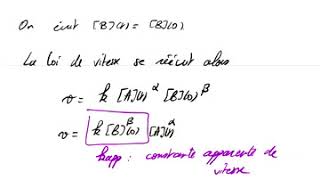 On écrit [B](t) = [B](0)
La loi de vitesse se réécrit alors
v = k [A](t)^α [B](0)^β
v = k [B]^β(0) [A](t)^α
kapp : constante apparente de
vitesse